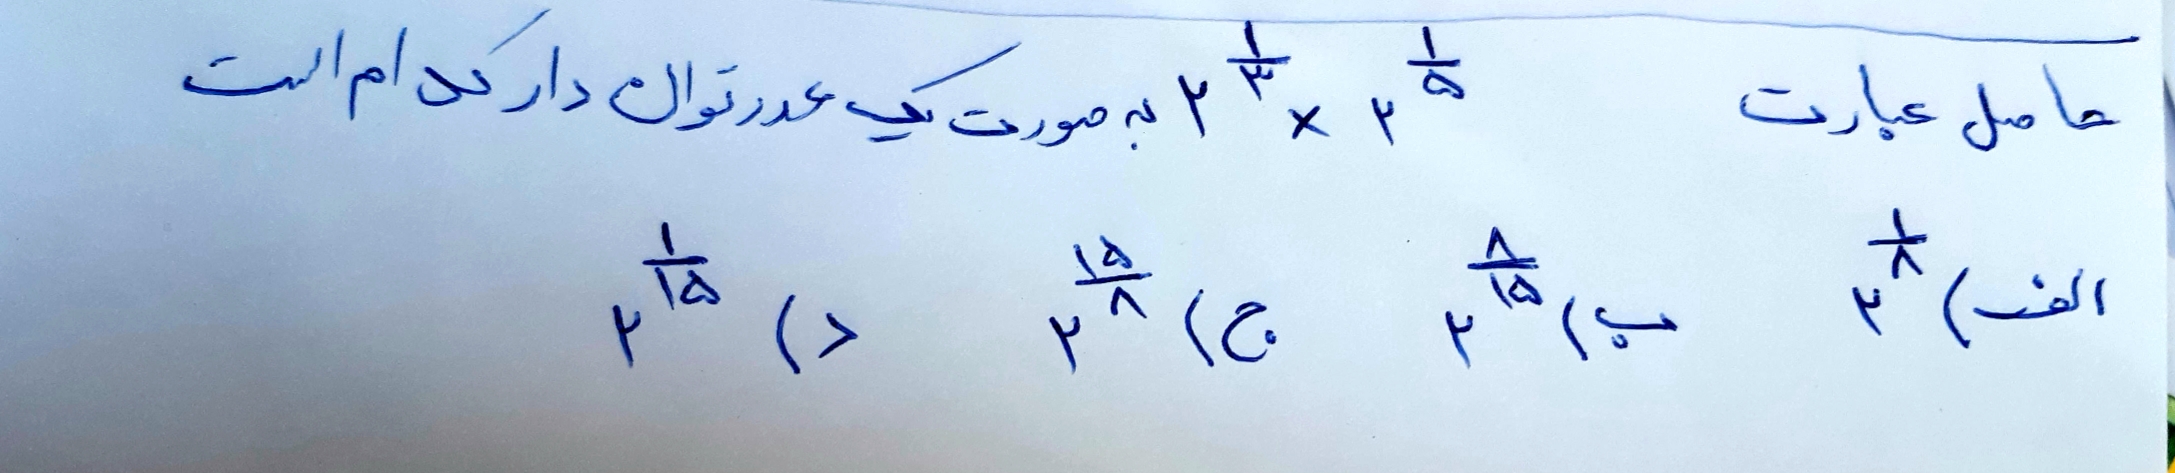 حاصل عبارت ۲^{۱/۳} × ۲^{۱/۵} به صورت یک عدد توان دار کدام است
الف) ۲^{۱/۸} ب) ۲^{۸/۱۵} ج) ۲^{۱۵/۸} د) ۲^{۱/۱۵}